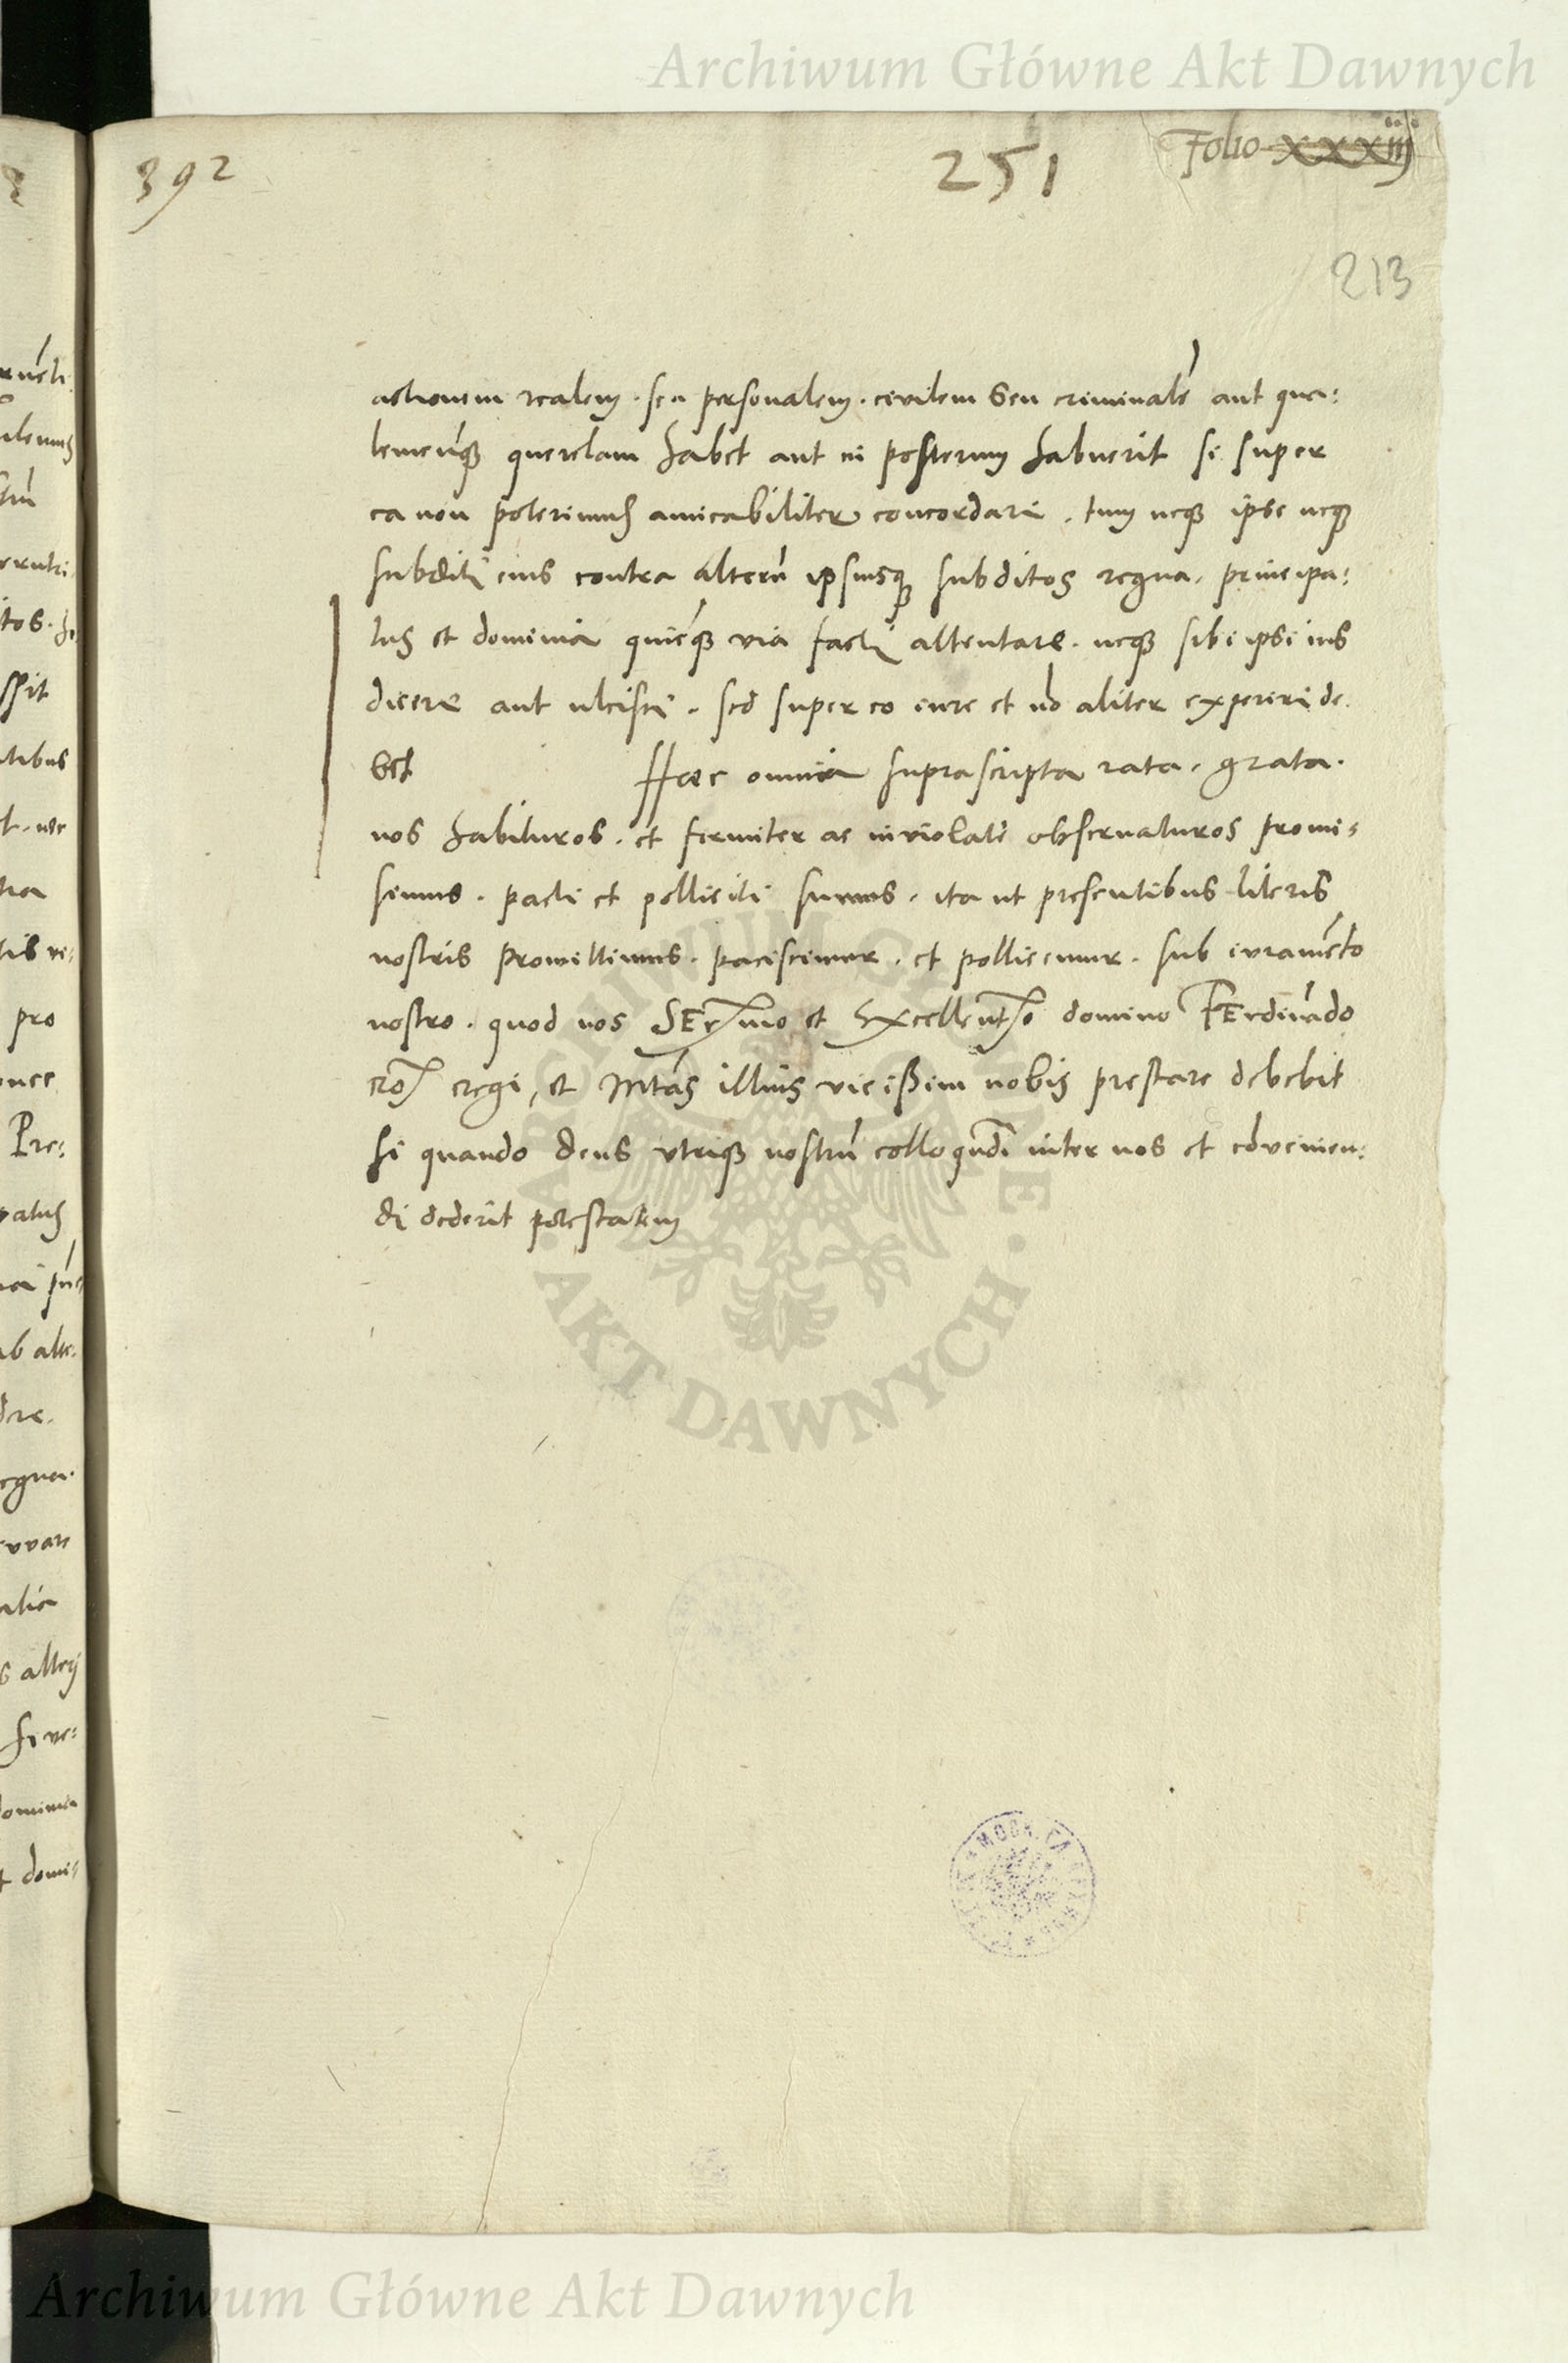 Archiwum Główne Akt Dawnych
392
251
Folio xxxiiij
213
actionem realem · seu personalem · civilem seu criminalē aut qua:
lemcūqꝫ querelam habet aut in posterum habuerit si super
ea non poterimus amicabiliter concordari · tum neqꝫ ipse neqꝫ
subditi eius contra alterū ipsiusqꝫ subditos regna · principa:
tus et dominia quicqꝫ via facti attentare · neqꝫ sibi ipsi ius
dicere aut ulcisci · sed super eo iure et nō aliter experiri de·
bet Haec omnia suprascripta rata · grata ·
nos habituros · et firmiter ac inviolate observaturos promi:
simus · pacti et polliciti sumus · ita ut presentibus literis
nostris promittimus · paciscimur · et pollicemur · sub iuramēto
nostro · quod nos SErmo et Excellentmo domino FErdināndo
Ro. regi, et Mtas illius vicißim nobis prestare debebit
si quando deus utriqꝫ nostrū colloquēdi inter nos et cōvenien:
di dederit potestatem
ARCHIWUM GŁÓWNE · AKT DAWNYCH ·
Archiwum Główne Akt Dawnych